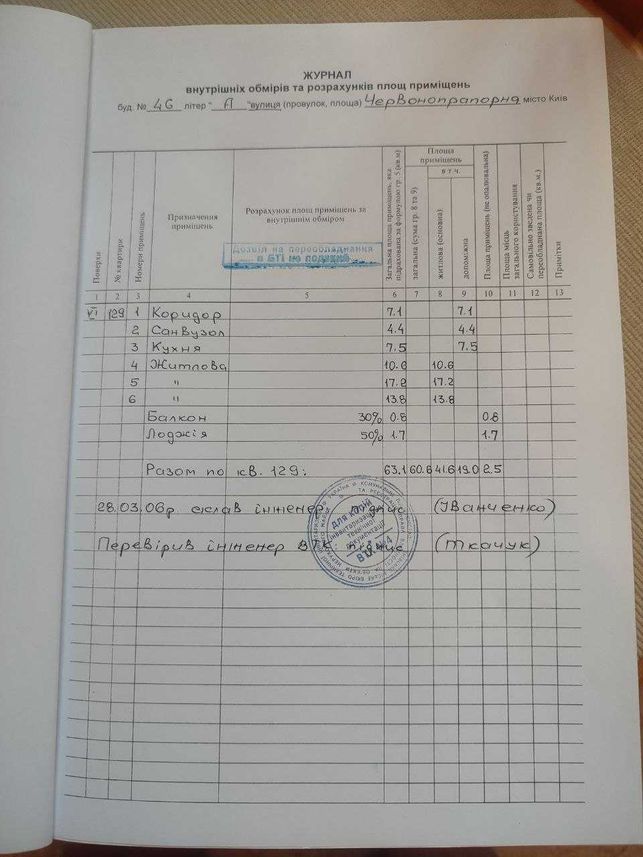 ЖУРНАЛ
внутрішніх обмірів та розрахунків площ приміщень
буд. № 46 літер "А" вулиця (провулок, площа) Червонопрапорна місто Київ
Поверхи
№ квартири
Номери приміщень
Призначення приміщень
Розрахунок площ приміщень за внутрішнім обміром
Дозвіл на переобладнання
в БТІ не поданий
Загальна площа приміщень, яка підрахована за формулою гр. 5 (кв.м)
Площа приміщень
загальна (сума гр. 8 та 9)
в т.ч.
житлова (основна)
допоміжна
Площа приміщень (не опалювальна)
Площа місць загального користування
Самовільно зведена чи переобладнана площа (кв.м.)
Примітки
1 2 3 4 5 6 7 8 9 10 11 12 13
VI 129 1 Коридор 7.1 7.1
2 Санвузол 4.4 4.4
3 Кухня 7.5 7.5
4 Житлова 10.6 10.6
5 " 17.2 17.2
6 " 13.8 13.8
Балкон 30% 0.8 0.8
Лоджія 50% 1.7 1.7
Разом по кв. 129: 63.1 60.6 41.6 19.0 2.5
28.03.06р. склав інженер підпис (Іванченко)
Перевірив інженер ВТК підпис (Ткачук)
Для копій
інвентаризаційної
технічної
документації